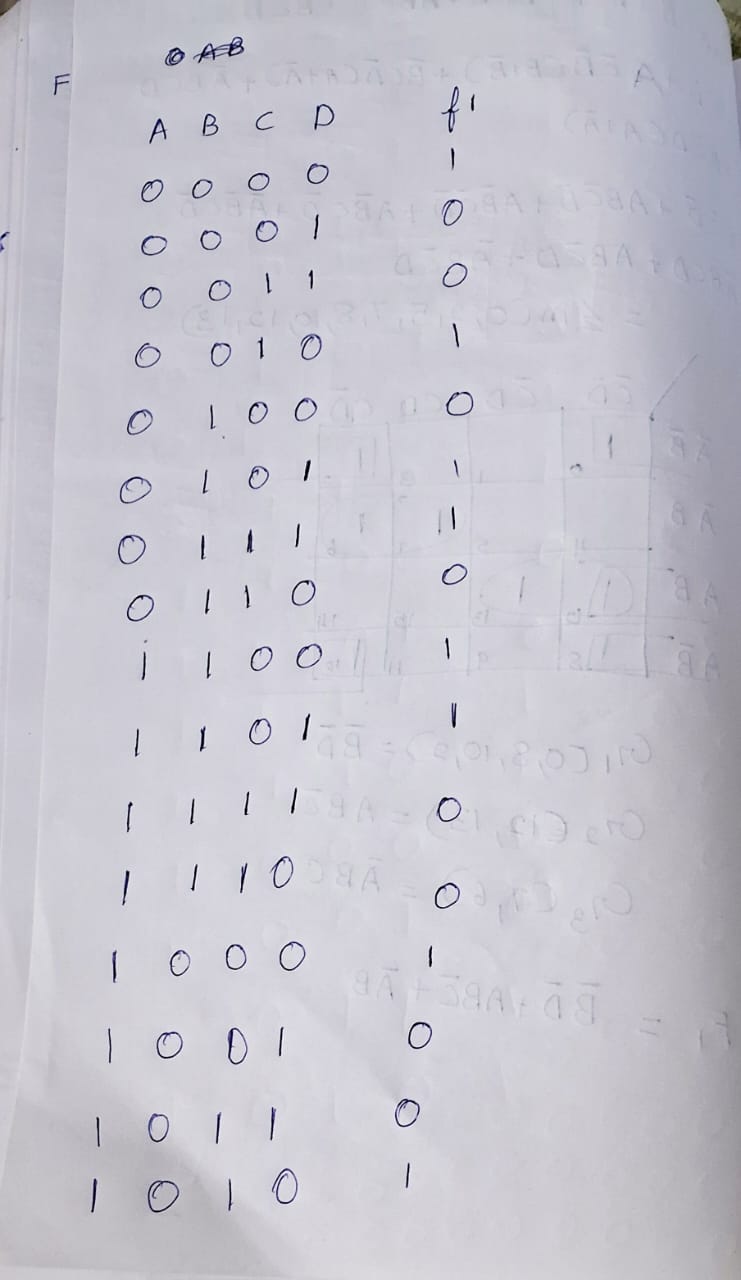 F
A B C D f1
0 0 0 0 1
0 0 0 1 0
0 0 1 1 0
0 0 1 0 1
0 1 0 0 0
0 1 0 1 1
0 1 1 1 1
0 1 1 0 0
1 1 0 0 1
1 1 0 1 1
1 1 1 1 0
1 1 1 0 0
1 0 0 0 1
1 0 0 1 0
1 0 1 1 0
1 0 1 0 1